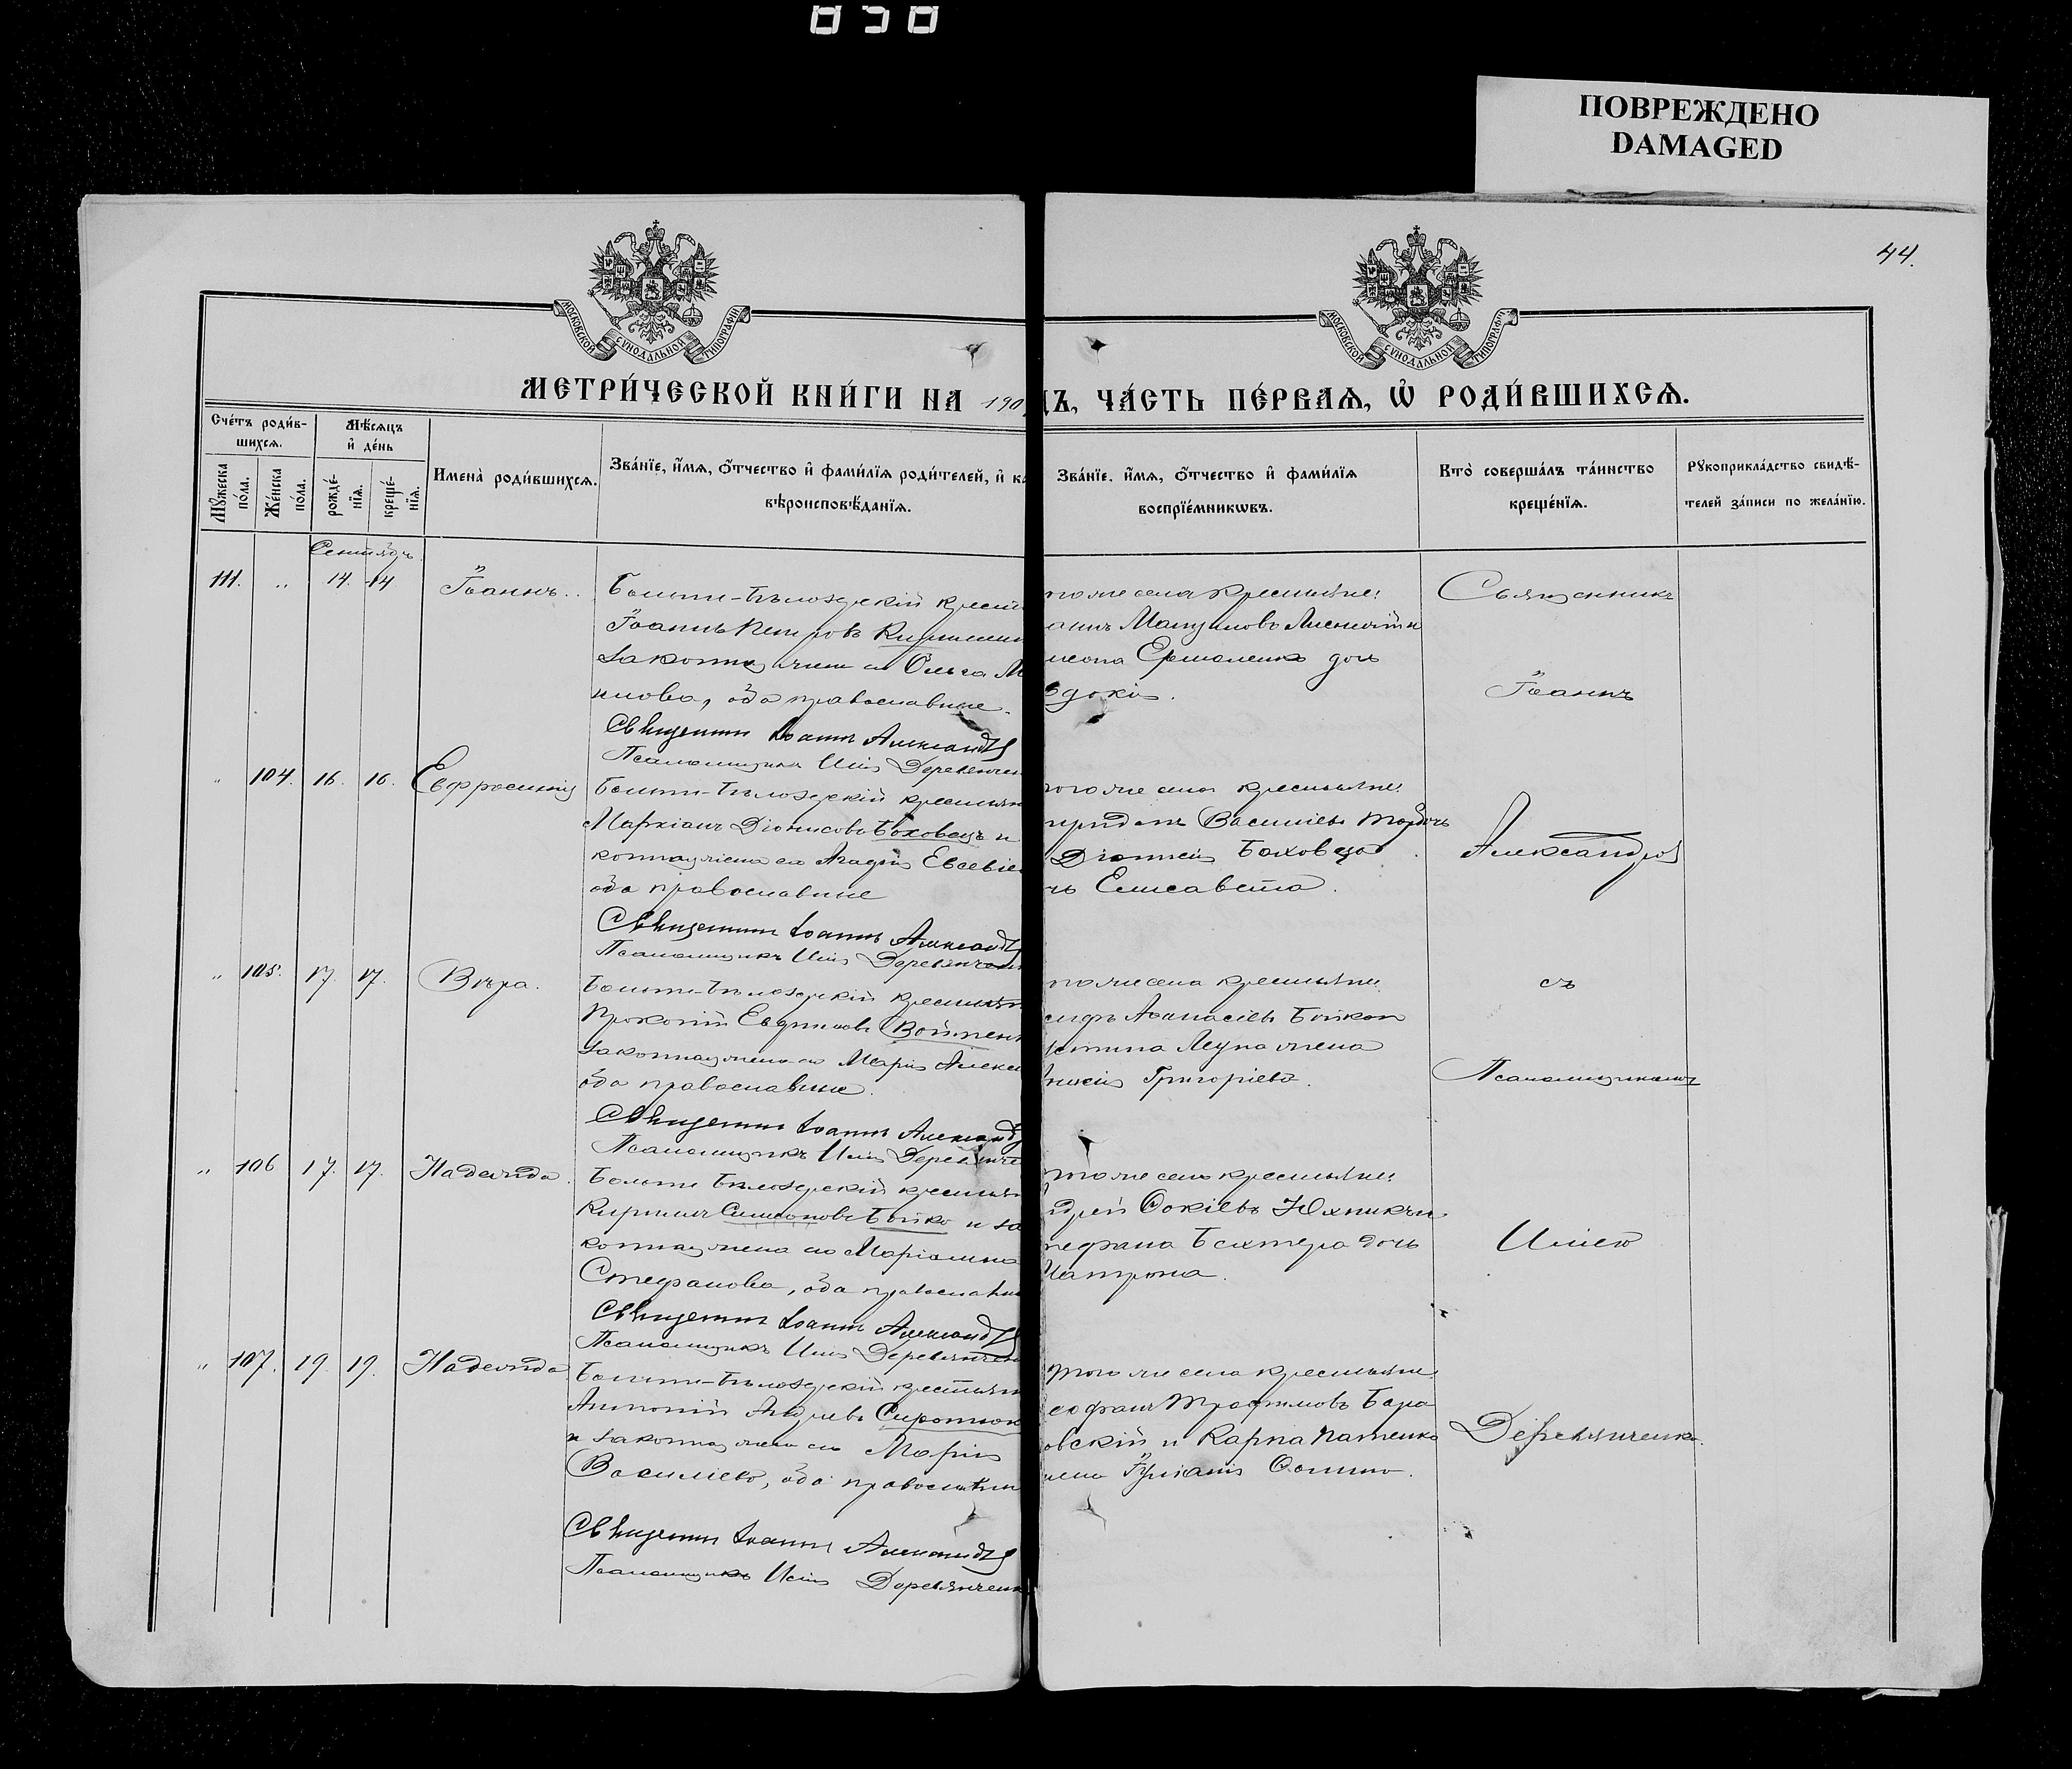 030
ПОВРЕЖДЕНО
DAMAGED
44.
МОСКОВСКОЙ СѴНОДАЛЬНОЙ ТИПОГРАФІИ
МОСКОВСКОЙ СѴНОДАЛЬНОЙ ТИПОГРАФІИ
МЕТРИ́ЧЕСКОЙ КНИ́ГИ НА 190
ДЪ, ЧА́СТЬ ПЕ́РВАѦ, Ѡ҆ РОДИ́ВШИХСѦ.
Сче́тъ роди́в-
шихсѧ.
Мѣ́сѧцъ
и҆ де́нь
Мꙋ́жеска
по́ла.
Же́нска
по́ла.
рожде́-
нїѧ.
креще́-
нїѧ.
Имена̀ роди́вшихсѧ.
Зва́нїе, и҆́мѧ, ѻ҆́тчество и҆ фами́лїѧ роди́телей, и҆ ка
вѣроисповѣ́данїѧ.
Зва́нїе, и҆́мѧ, ѻ҆́тчество и҆ фами́лїѧ
воспрїе́мникѡвъ.
Кто̀ соверша́лъ та́инство
креще́нїѧ.
Рꙋкоприкла́дство свидѣ́-
телей за́писи по жела́нїю.
Сентябрь
111. „ 14. 14 Іоаннъ.
Больше-Бѣлозерскій крестья
Іоаннъ Петровъ
законная жена его Ольга М
илова, оба православные.
Священникъ Іоаннъ Александр
Псаломщикъ Илія Деревянчен
того же села крестьяне:
Ермоленко дочь
вдокія.
Священникъ
Іоаннъ
„ 104. 16. 16. Евфросинія
Больше-Бѣлозерскій крестьян
Маркіанъ Діонисовъ Боховецъ и
конная жена его Агафія Евсевіе
оба православные
Священникъ Іоаннъ Александр
Псаломщикъ Илія Деревянчен
того же села крестьяне:
Василіевъ
Діонисія Боховца
чь Елисавета.
Александров
„ 105. 17. 17. Вѣра.
Больше-Бѣлозерскій крестьян
Прокопій Евфимовъ Войтенк
законная жена его Марія Алексе
оба православные.
Священникъ Іоаннъ Александр
Псаломщикъ Илія Деревянче
того же села крестьяне:
сифъ Аѳанасіевъ Бойко и
жена
Григоріева.
съ
Псаломщикомъ
„ 106 17. 17. Надежда.
Больше Бѣлозерскій крестьян
Кириллъ Симеоновъ Бойко и за
конная жена его Маріамна
Стефанова, оба православны
Священникъ Іоаннъ Александр
Псаломщикъ Илія Деревянчен
того же села крестьяне:
дрей
тефана Бехтера дочь
Матрона.
Иліею
„ 107. 19. 19. Надежда
Больше-Бѣлозерскій крестьян
Антоній Андреевъ Сиротюк
и законная жена его Марія
Василіева, оба православны
Священникъ Іоаннъ Александр
Псаломщикъ Илія Деревянченк
того же села крестьяне:
еофанъ Трофимовъ Бара
овскій и Карпа Патенко
жена Іуліанія
Деревянченко.